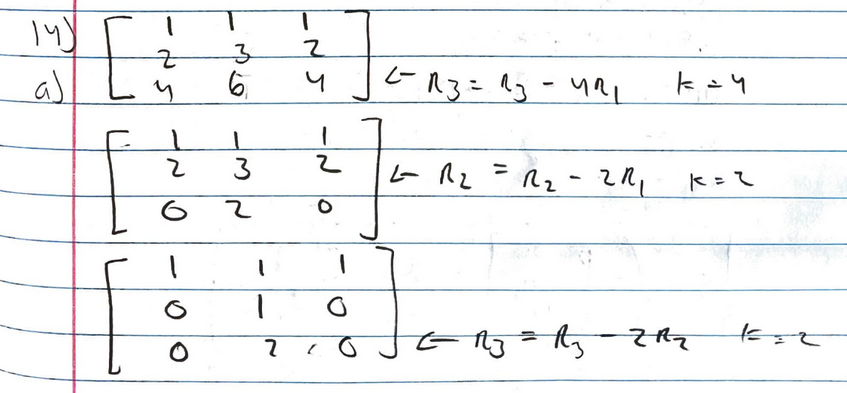 14) [ 1 1 1
2 3 2
a) 4 6 4 ] ← R3 = R3 - 4R1 k = 4
[ 1 1 1
2 3 2 ← R2 = R2 - 2R1 k = 2
0 2 0 ]
[ 1 1 1
0 1 0
0 2 0 ] ← R3 = R3 - 2R2 k = 2